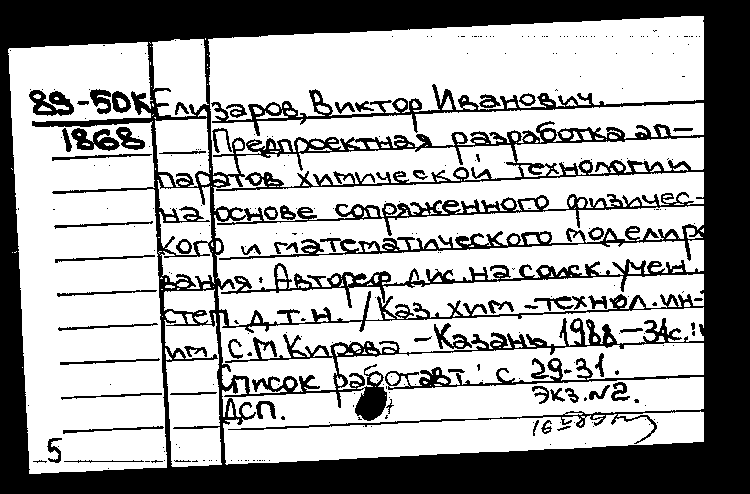 89-50К Елизаров, Виктор Иванович.
1868 Предпроектная разработка ап-
паратов химической технологии
на основе сопряженного физичес-
кого и математического моделиро
вания: Автореф дис. на соиск. учен.
степ. д.т.н. / Каз. хим.-технол. ин-
им. С.М. Кирова. - Казань, 1988. - 34с.
Список работ авт.: с. 29-31.
ДСП. Экз. №2.
5